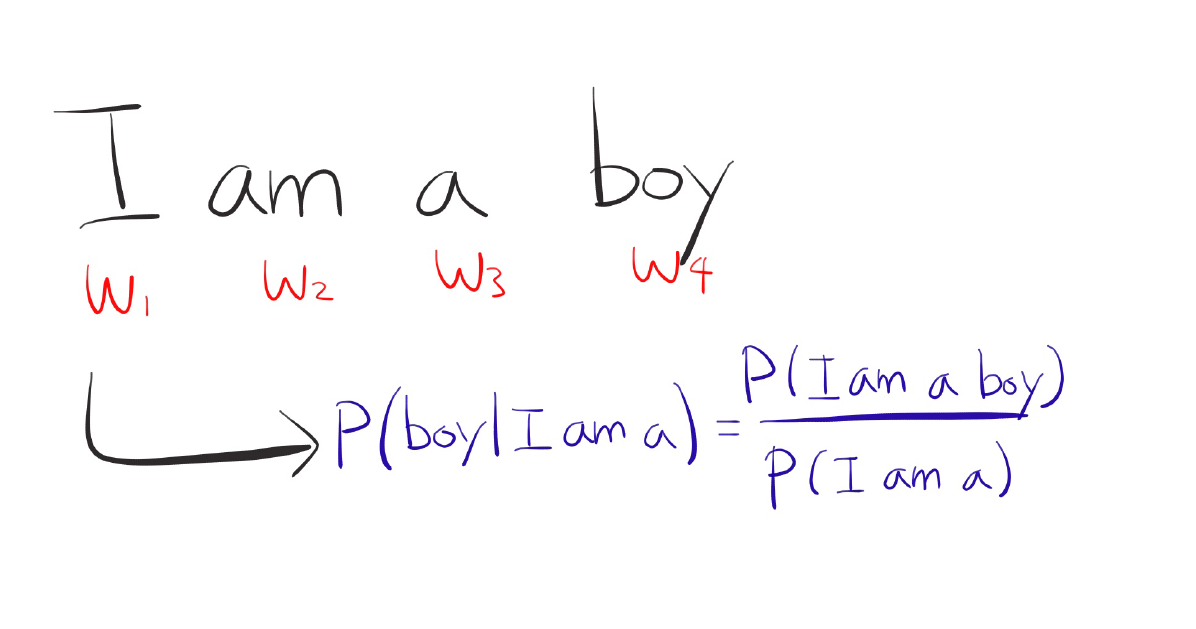 I am a boy
W1 W2 W3 W4
P(boy|I am a) = P(I am a boy)
P(I am a)